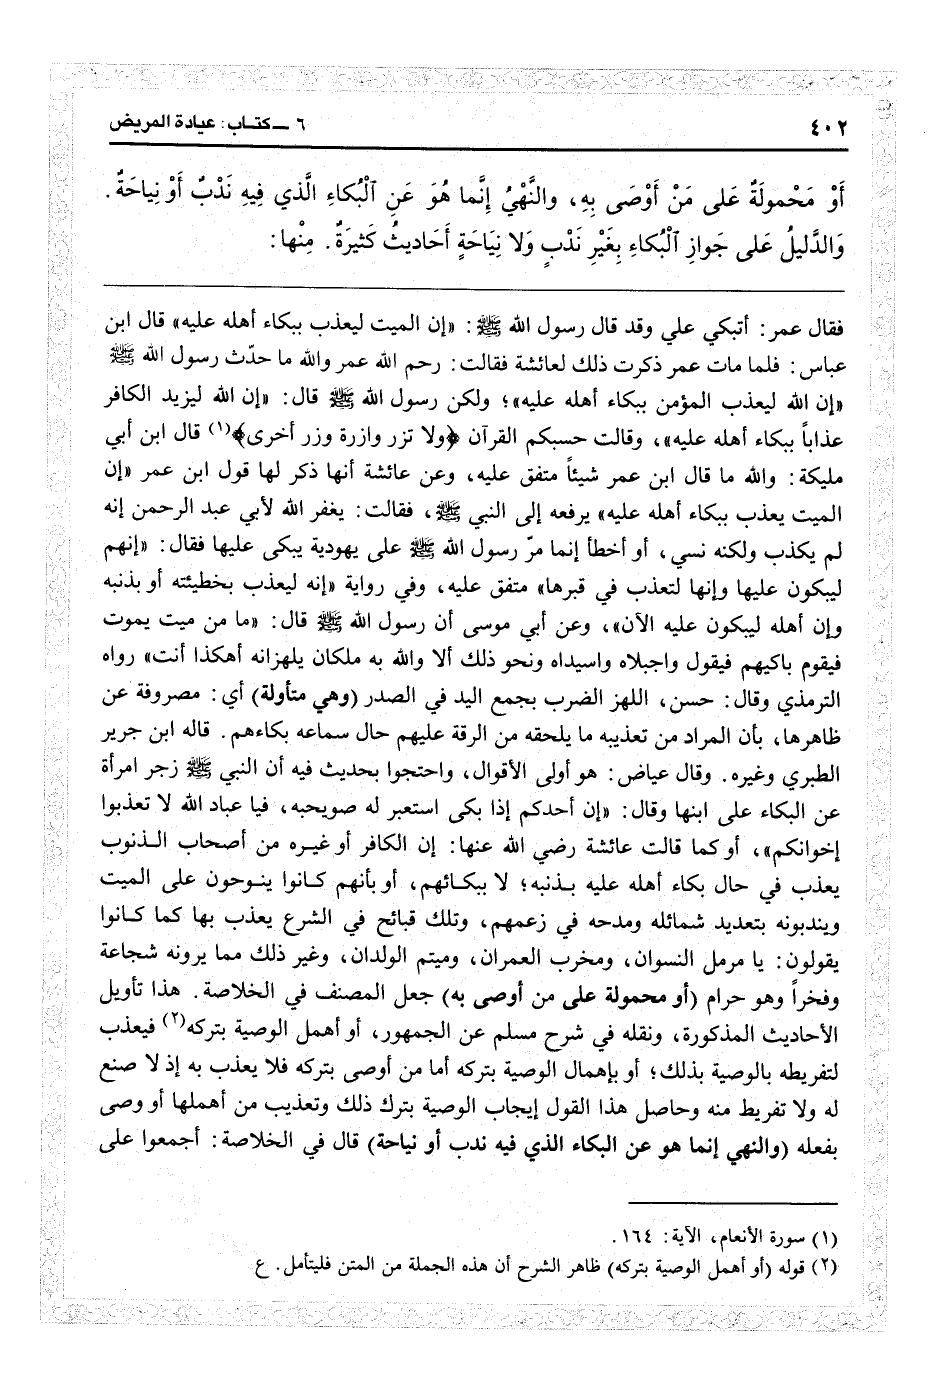 ٤٠٢
٦ ــ كتـاب: عيادة المريض
أَوْ مَحْمولَةٌ عَلى مَنْ أَوْصَى بِهِ، والنَّهْيُ إنَّما هُوَ عَنِ ٱلْبُكاءِ الَّذي فِيهِ نَدْبٌ أَوْ نِياحَةٌ.
وَالدَّليلُ عَلى جَوازِ ٱلْبُكاءِ بِغَيْرِ نَدْبٍ وَلا نِيَاحَةٍ أَحَاديثُ كَثيرَةٌ. مِنْها:
فقال عمر: أتبكي علي وقد قال رسول الله ﷺ: «إن الميت ليعذب ببكاء أهله عليه» قال ابن
عباس: فلما مات عمر ذكرت ذلك لعائشة فقالت: رحم الله عمر والله ما حدّث رسول الله ﷺ
«إن الله ليعذب المؤمن ببكاء أهله عليه»؛ ولكن رسول الله ﷺ قال: «إن الله ليزيد الكافر
عذاباً ببكاء أهله عليه»، وقالت حسبكم القرآن ﴿ولا تزر وازرة وزر أخرى﴾(١) قال ابن أبي
مليكة: والله ما قال ابن عمر شيئاً متفق عليه، وعن عائشة أنها ذكر لها قول ابن عمر «إن
الميت يعذب ببكاء أهله عليه» يرفعه إلى النبي ﷺ، فقالت: يغفر الله لأبي عبد الرحمن إنه
لم يكذب ولكنه نسي، أو أخطأ إنما مرّ رسول الله ﷺ على يهودية يبكى عليها فقال: «إنهم
ليبكون عليها وإنها لتعذب في قبرها» متفق عليه، وفي رواية «إنه ليعذب بخطيئته أو بذنبه
وإن أهله ليبكون عليه الآن»، وعن أبي موسى أن رسول الله ﷺ قال: «ما من ميت يموت
فيقوم باكيهم فيقول واجبلاه واسيداه ونحو ذلك ألا والله به ملكان يلهزانه أهكذا أنت» رواه
الترمذي وقال: حسن، اللهز الضرب بجمع اليد في الصدر (وهي متأولة) أي: مصروفة عن
ظاهرها، بأن المراد من تعذيبه ما يلحقه من الرقة عليهم حال سماعه بكاءهم. قاله ابن جرير
الطبري وغيره. وقال عياض: هو أولى الأقوال، واحتجوا بحديث فيه أن النبي ﷺ زجر امرأة
عن البكاء على ابنها وقال: «إن أحدكم إذا بكى استعبر له صويحبه، فيا عباد الله لا تعذبوا
إخوانكم»، أو كما قالت عائشة رضي الله عنها: إن الكافر أو غيـره من أصحاب الـذنوب
يعذب في حال بكاء أهله عليه بـذنبه؛ لا ببكـائهم، أو بأنهم كـانوا ينـوحون على الميت
ويندبونه بتعديد شمائله ومدحه في زعمهم، وتلك قبائح في الشرع يعذب بها كما كـانوا
يقولون: يا مرمل النسوان، ومخرب العمران، وميتم الولدان، وغير ذلك مما يرونه شجاعة
وفخراً وهو حرام (أو محمولة على من أوصى به) جعل المصنف في الخلاصة. هذا تأويل
الأحاديث المذكورة، ونقله في شرح مسلم عن الجمهور، أو أهمل الوصية بتركه(٢) فيعذب
لتفريطه بالوصية بذلك؛ أو بإهمال الوصية بتركه أما من أوصى بتركه فلا يعذب به إذ لا صنع
له ولا تفريط منه وحاصل هذا القول إيجاب الوصية بترك ذلك وتعذيب من أهملها أو وصى
بفعله (والنهي إنما هو عن البكاء الذي فيه ندب أو نياحة) قال في الخلاصة: أجمعوا على
(١) سورة الأنعام، الآية: ١٦٤.
(٢) قوله (أو أهمل الوصية بتركه) ظاهر الشرح أن هذه الجملة من المتن فليتأمل. ع